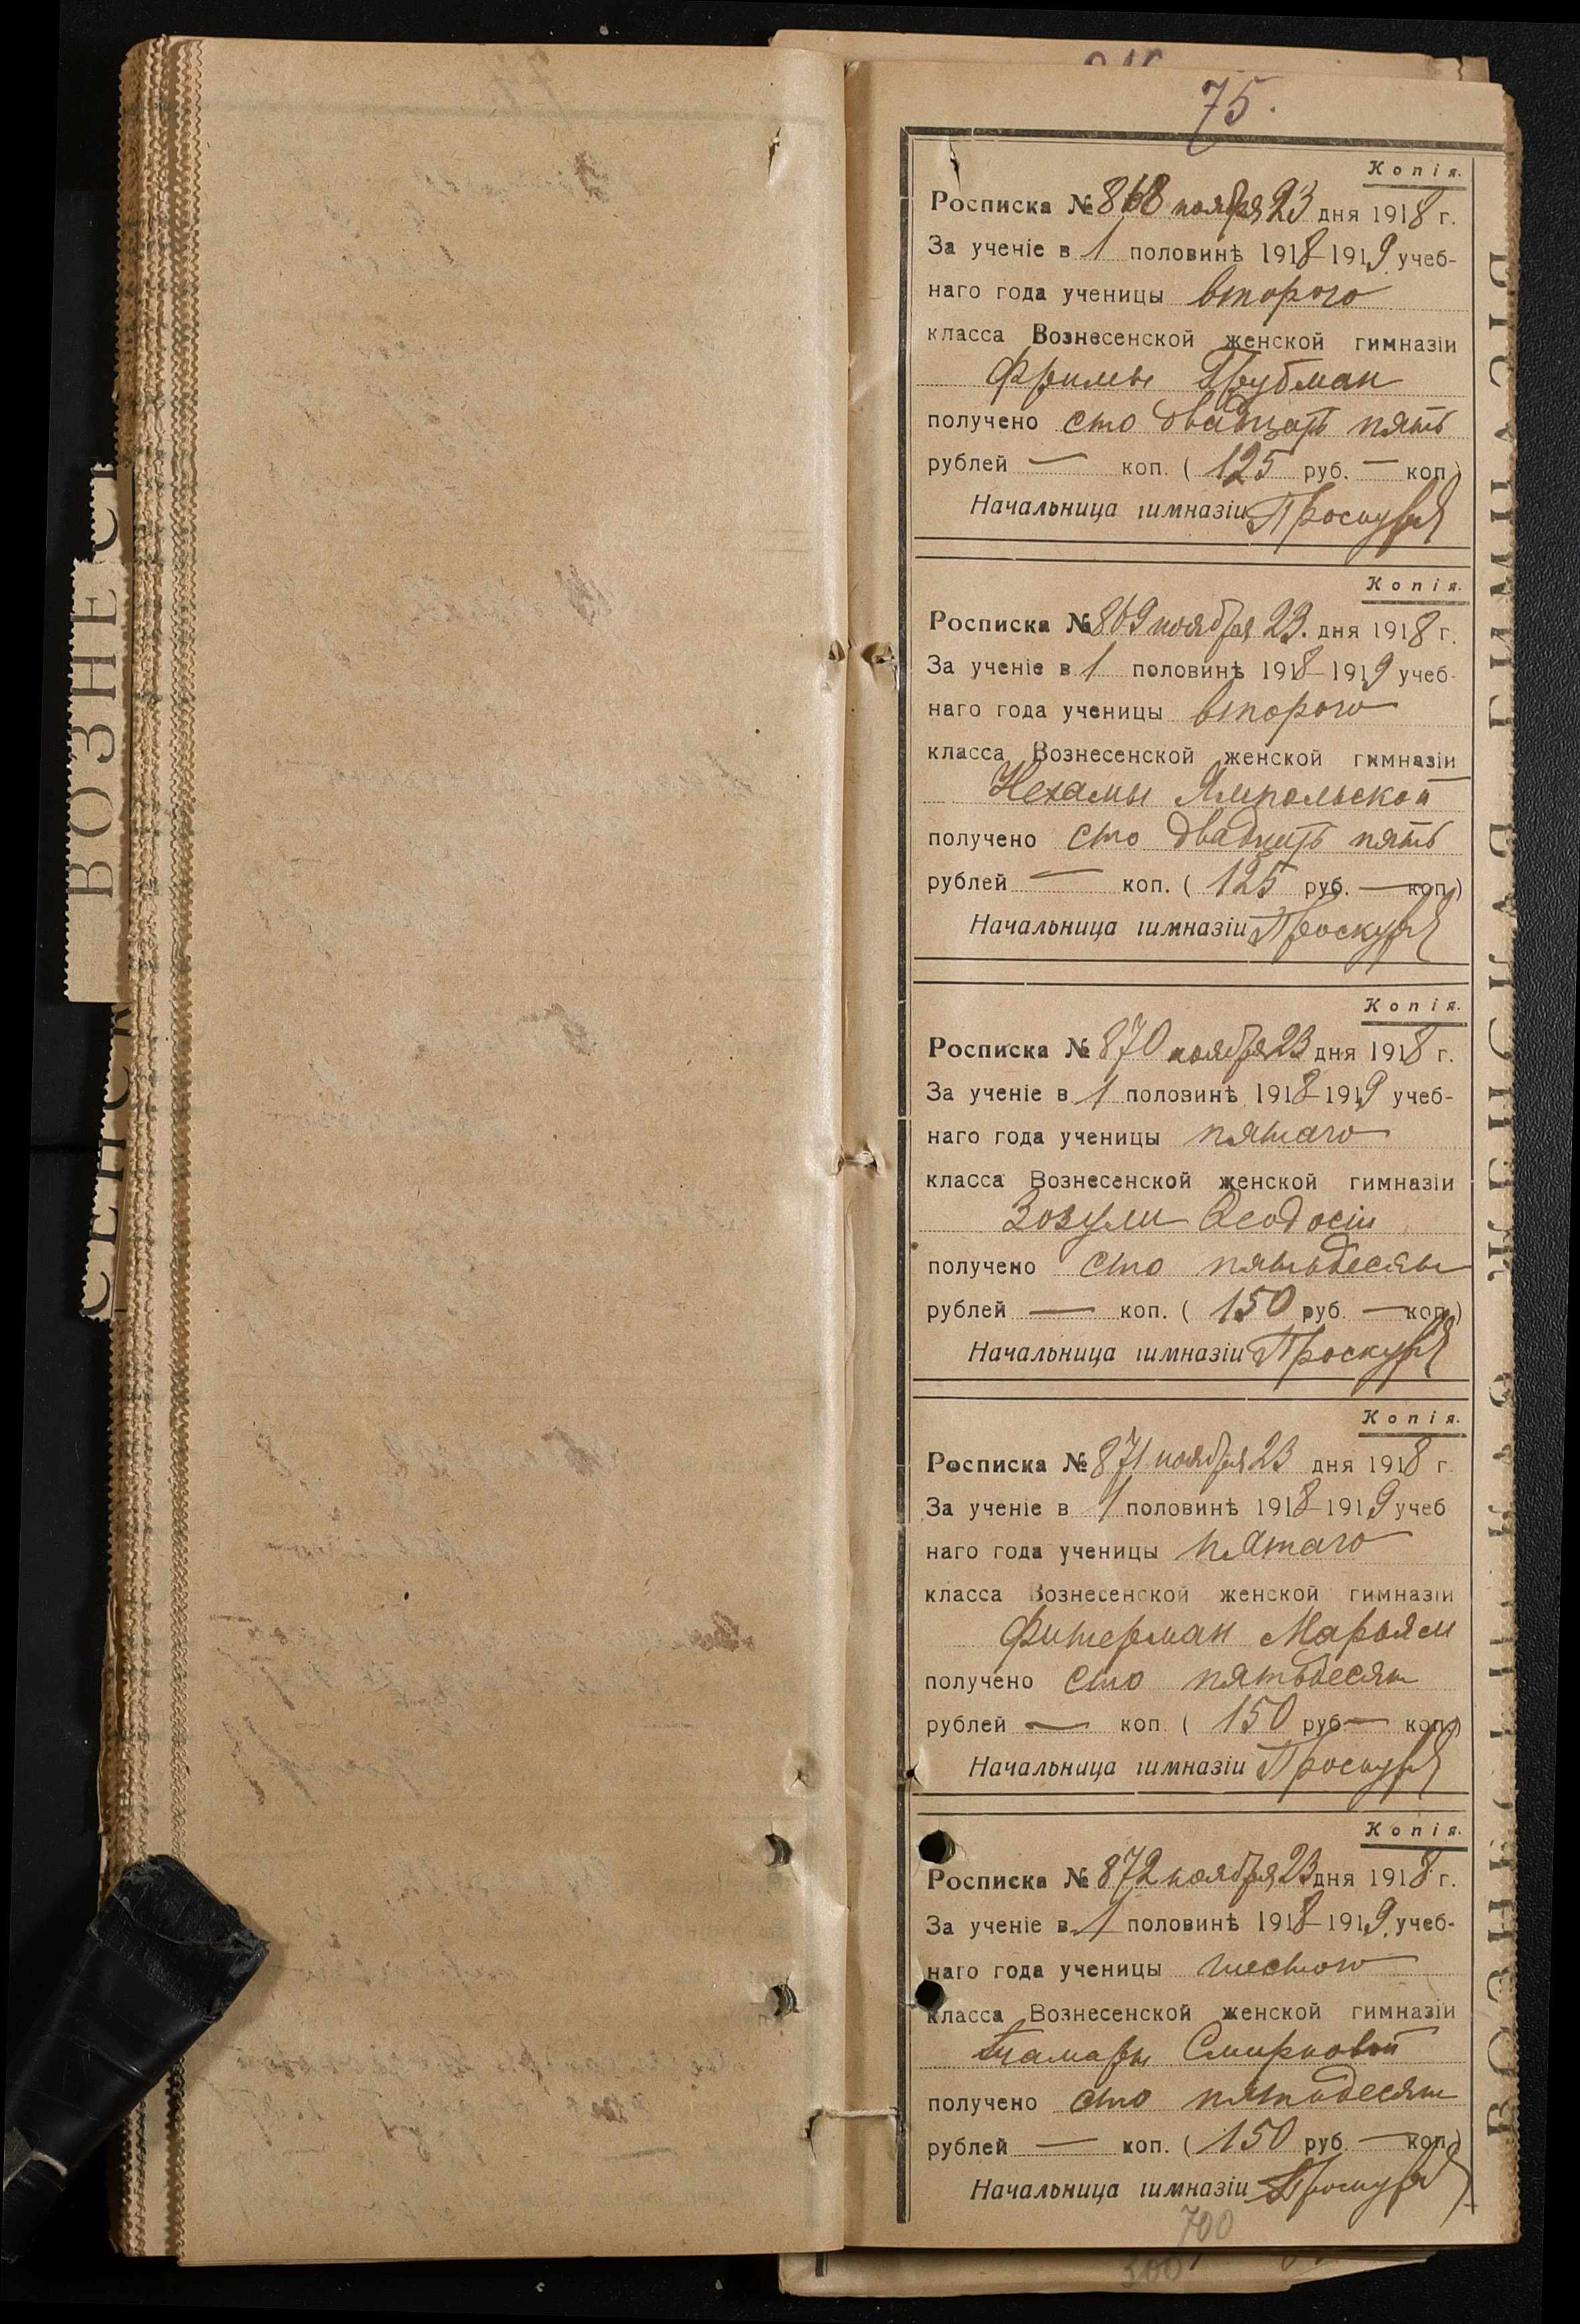 75.
Копія.
Росписка № 868 ноября 23 дня 1918 г.
За ученіе в 1 половинѣ 1918-1919 учеб-
наго года ученицы второго
класса Вознесенской женской гимназіи
Фримы Трубман
получено сто двадцать пять
рублей — коп. ( 125 руб. — коп)
Начальница гимназіи Проскуря
Копія.
Росписка № 869 ноября 23. дня 1918 г.
За ученіе в 1 половинѣ 1918-1919 учеб-
наго года ученицы второго
класса Вознесенской женской гимназіи
Нехамы Ямпольской
получено сто двадцать пять
рублей — коп. ( 125 руб. — коп)
Начальница гимназіи Проскуря
Копія.
Росписка № 870 ноября 23 дня 1918 г.
За ученіе в 1 половинѣ 1918-1919 учеб-
наго года ученицы пятаго
класса Вознесенской женской гимназіи
Зозули Ѳеодосіи
получено сто пятьдесят
рублей — коп. ( 150 руб. — коп.)
Начальница гимназіи Проскуря
Копія.
Росписка № 871 ноября 23 дня 1918 г.
За ученіе в 1 половинѣ 1918-1919 учеб
наго года ученицы пятаго
класса Вознесенской женской гимназіи
Фитерман Марьям
получено сто пятьдесят
рублей — коп. ( 150 руб — коп.)
Начальница гимназіи Проскуря
Копія.
Росписка № 872 ноября 23 дня 1918 г.
За ученіе в 1 половинѣ 1918-1919 учеб-
наго года ученицы шестого
класса Вознесенской женской гимназіи
Тамары Смирновой
получено сто пятьдесят
рублей — коп. ( 150 руб. — коп.)
Начальница гимназіи Проскуря
700
300
ВОЗНЕС